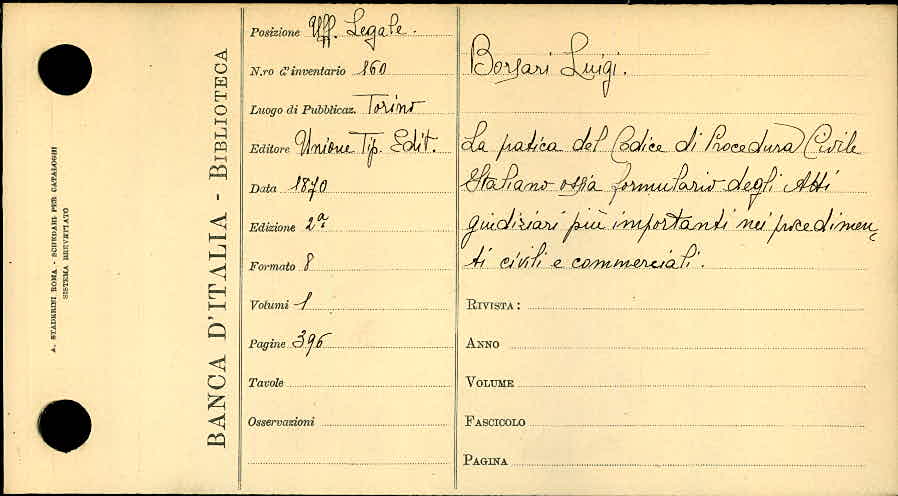 A. STADERINI, ROMA - SCHEDARI PER CATALOGHI
SISTEMA BREVETTATO
BANCA D'ITALIA - BIBLIOTECA
Posizione Uff. Legale.
N.ro d'inventario 160
Luogo di Pubblicaz. Torino
Editore Unione Tip. Edit.
Data 1870
Edizione 2ª
Formato 8
Volumi 1
Pagine 396
Tavole
Osservazioni
Borsari Luigi.
La pratica del Codice di Procedura Civile
Italiano ossia formulario degli Atti
giudiziari più importanti nei procedimen-
ti civili e commerciali.
RIVISTA:
ANNO
VOLUME
FASCICOLO
PAGINA